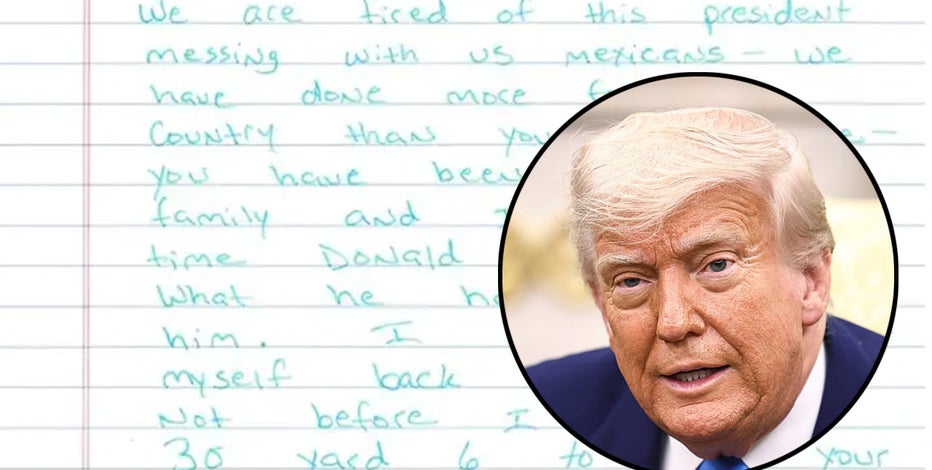 We are tired of this president
messing with us mexicans - we
have done more
Country than you
you have been
family and
time Donald
What he
him. I
myself back
Not before I
30 yard 6 to your